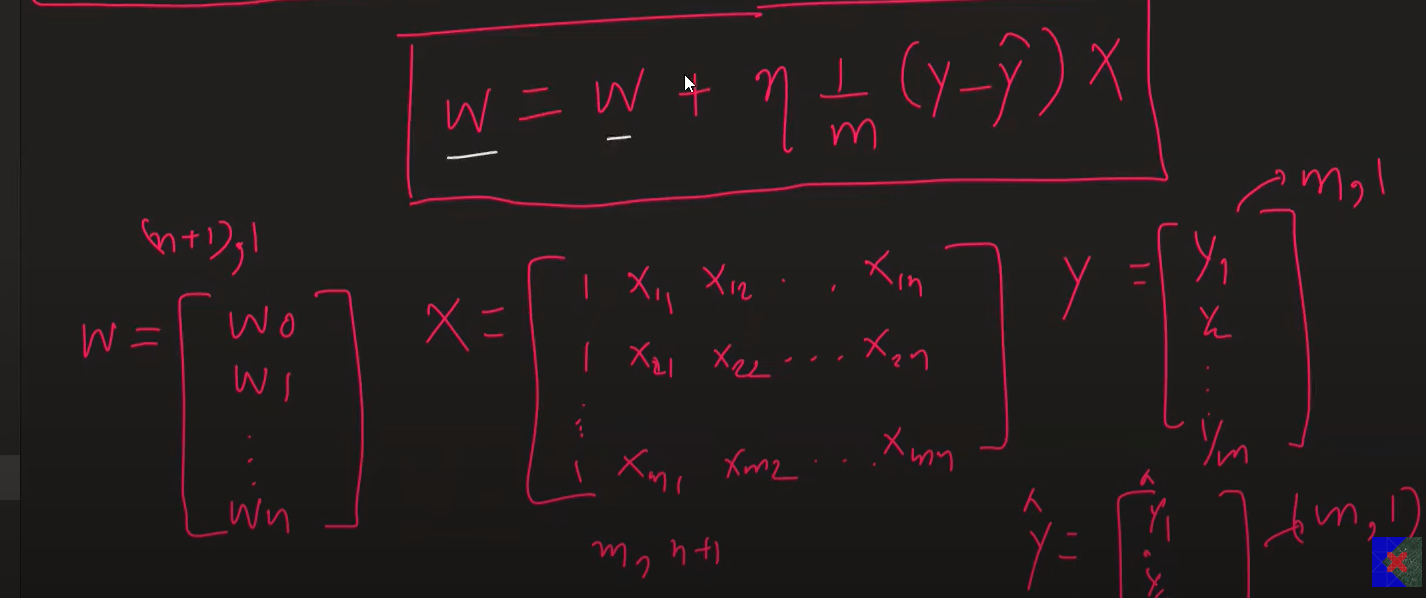 W = W + η 1/m (y - ŷ) X
m, 1
(n+1), 1
W = [ W0 W1 ⋮ Wn ]
X = [ 1 X11 X12 . . X1n
1 X21 X22 . . . . X2n
⋮
1 Xm1 Xm2 . . . . Xmn ]
m, n+1
y = [ y1 y2 ⋮ ym ]
ŷ = [ ŷ1
(m, 1)